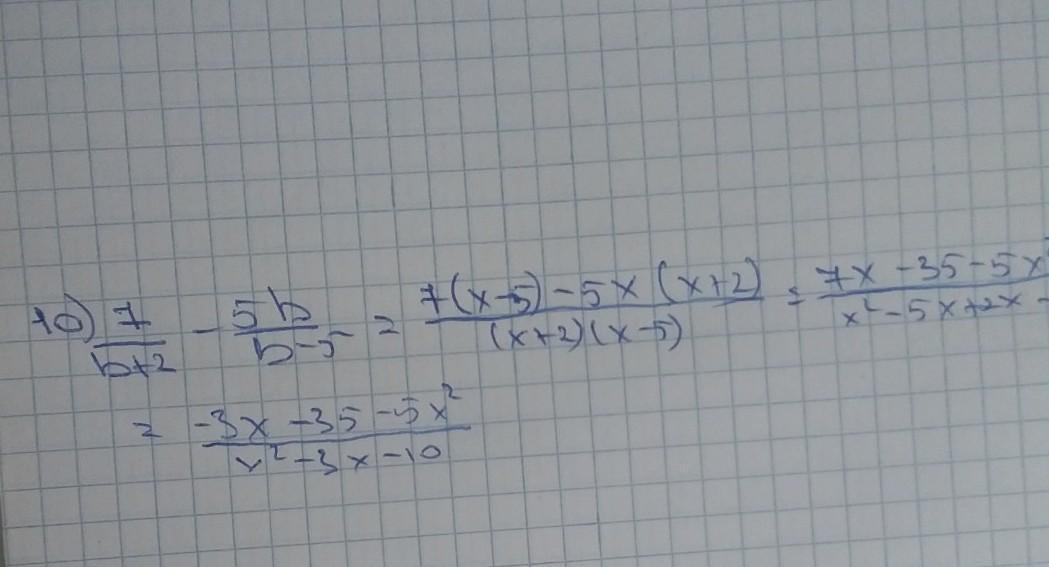 10) 7/(b+2) - 5b/(b-5) = (7(x-5)-5x(x+2))/((x+2)(x-5)) = (7x-35-5x²)/(x²-5x+2x-
= (-3x-35-5x²)/(x²-3x-10)